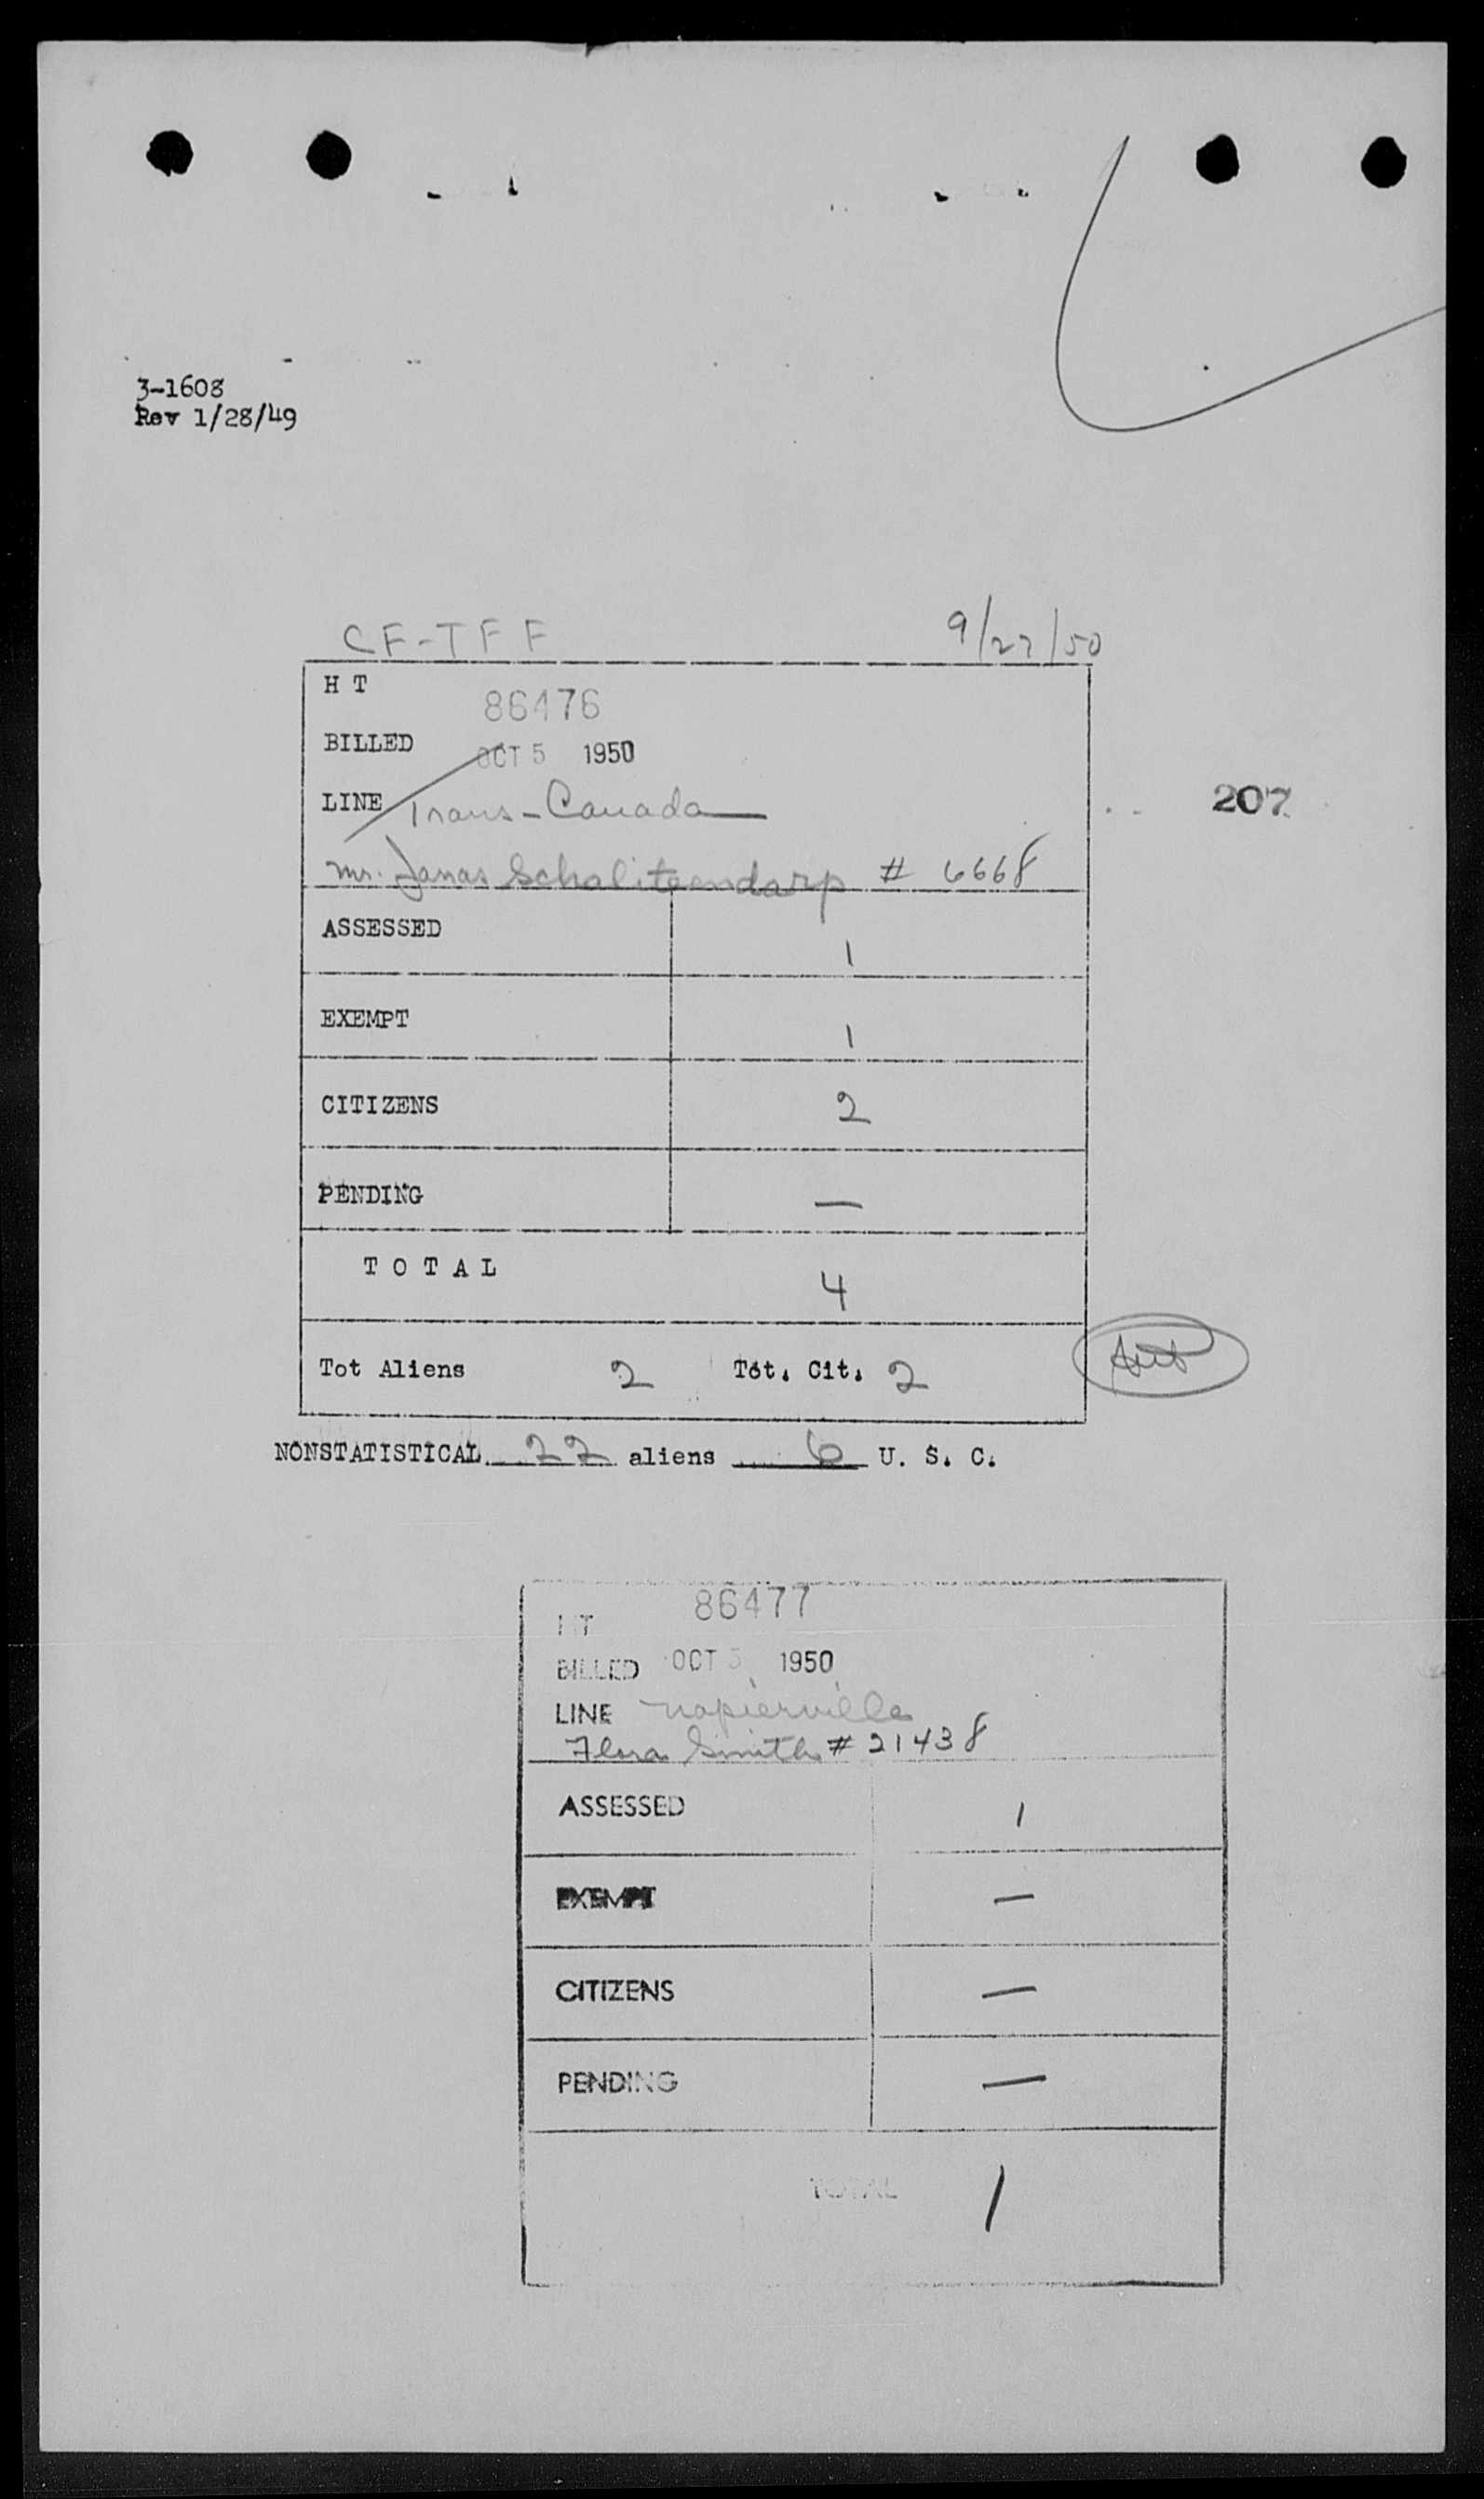 3-1608
Rev 1/28/49
CF-TFF 9/27/50
H T 86476
BILLED OCT 5 1950
LINE Trans-Canada
207
Mr. # 6668
ASSESSED 1
EXEMPT 1
CITIZENS 2
PENDING —
T O T A L 4
Tot Aliens 2 Tot. Cit. 2
NONSTATISTICAL 22 aliens 6 U. S. C.
HT 86477
BILLED OCT 5 1950
LINE Napierville
Flora Smith # 21438
ASSESSED 1
EXEMPT —
CITIZENS —
PENDING —
TOTAL 1